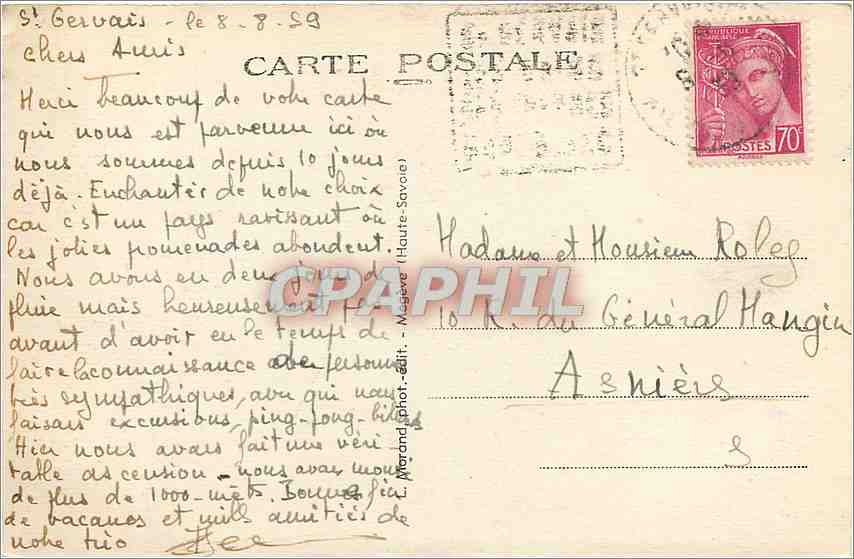 St Gervais - le 8-8-39
Chers Amis
CARTE POSTALE
Merci beaucoup de votre carte
qui nous est parvenue ici où
nous sommes depuis 10 jours
déjà. Enchantés de notre choix
car c'est un pays ravissant où
les jolies promenades abondent.
Nous avons eu deux jours de
pluie mais heureusement
avant d'avoir eu le temps de
faire la connaissance de personnes
très sympathiques, avec qui nous
faisons excursions, ping-pong-
Hier nous avons fait une véri-
table ascension - nous avons monté
de plus de 1000 - mèts. Bonne fin
de vacances et mille amitiés de
notre trio
L. Morand, phot.-édit. - Mégève (Haute-Savoie)
RÉPUBLIQUE FRANÇAISE
POSTES
70c
Madame et Monsieur Roleg
10 R. du Général Mangin
Asnières
S
CPAPHIL